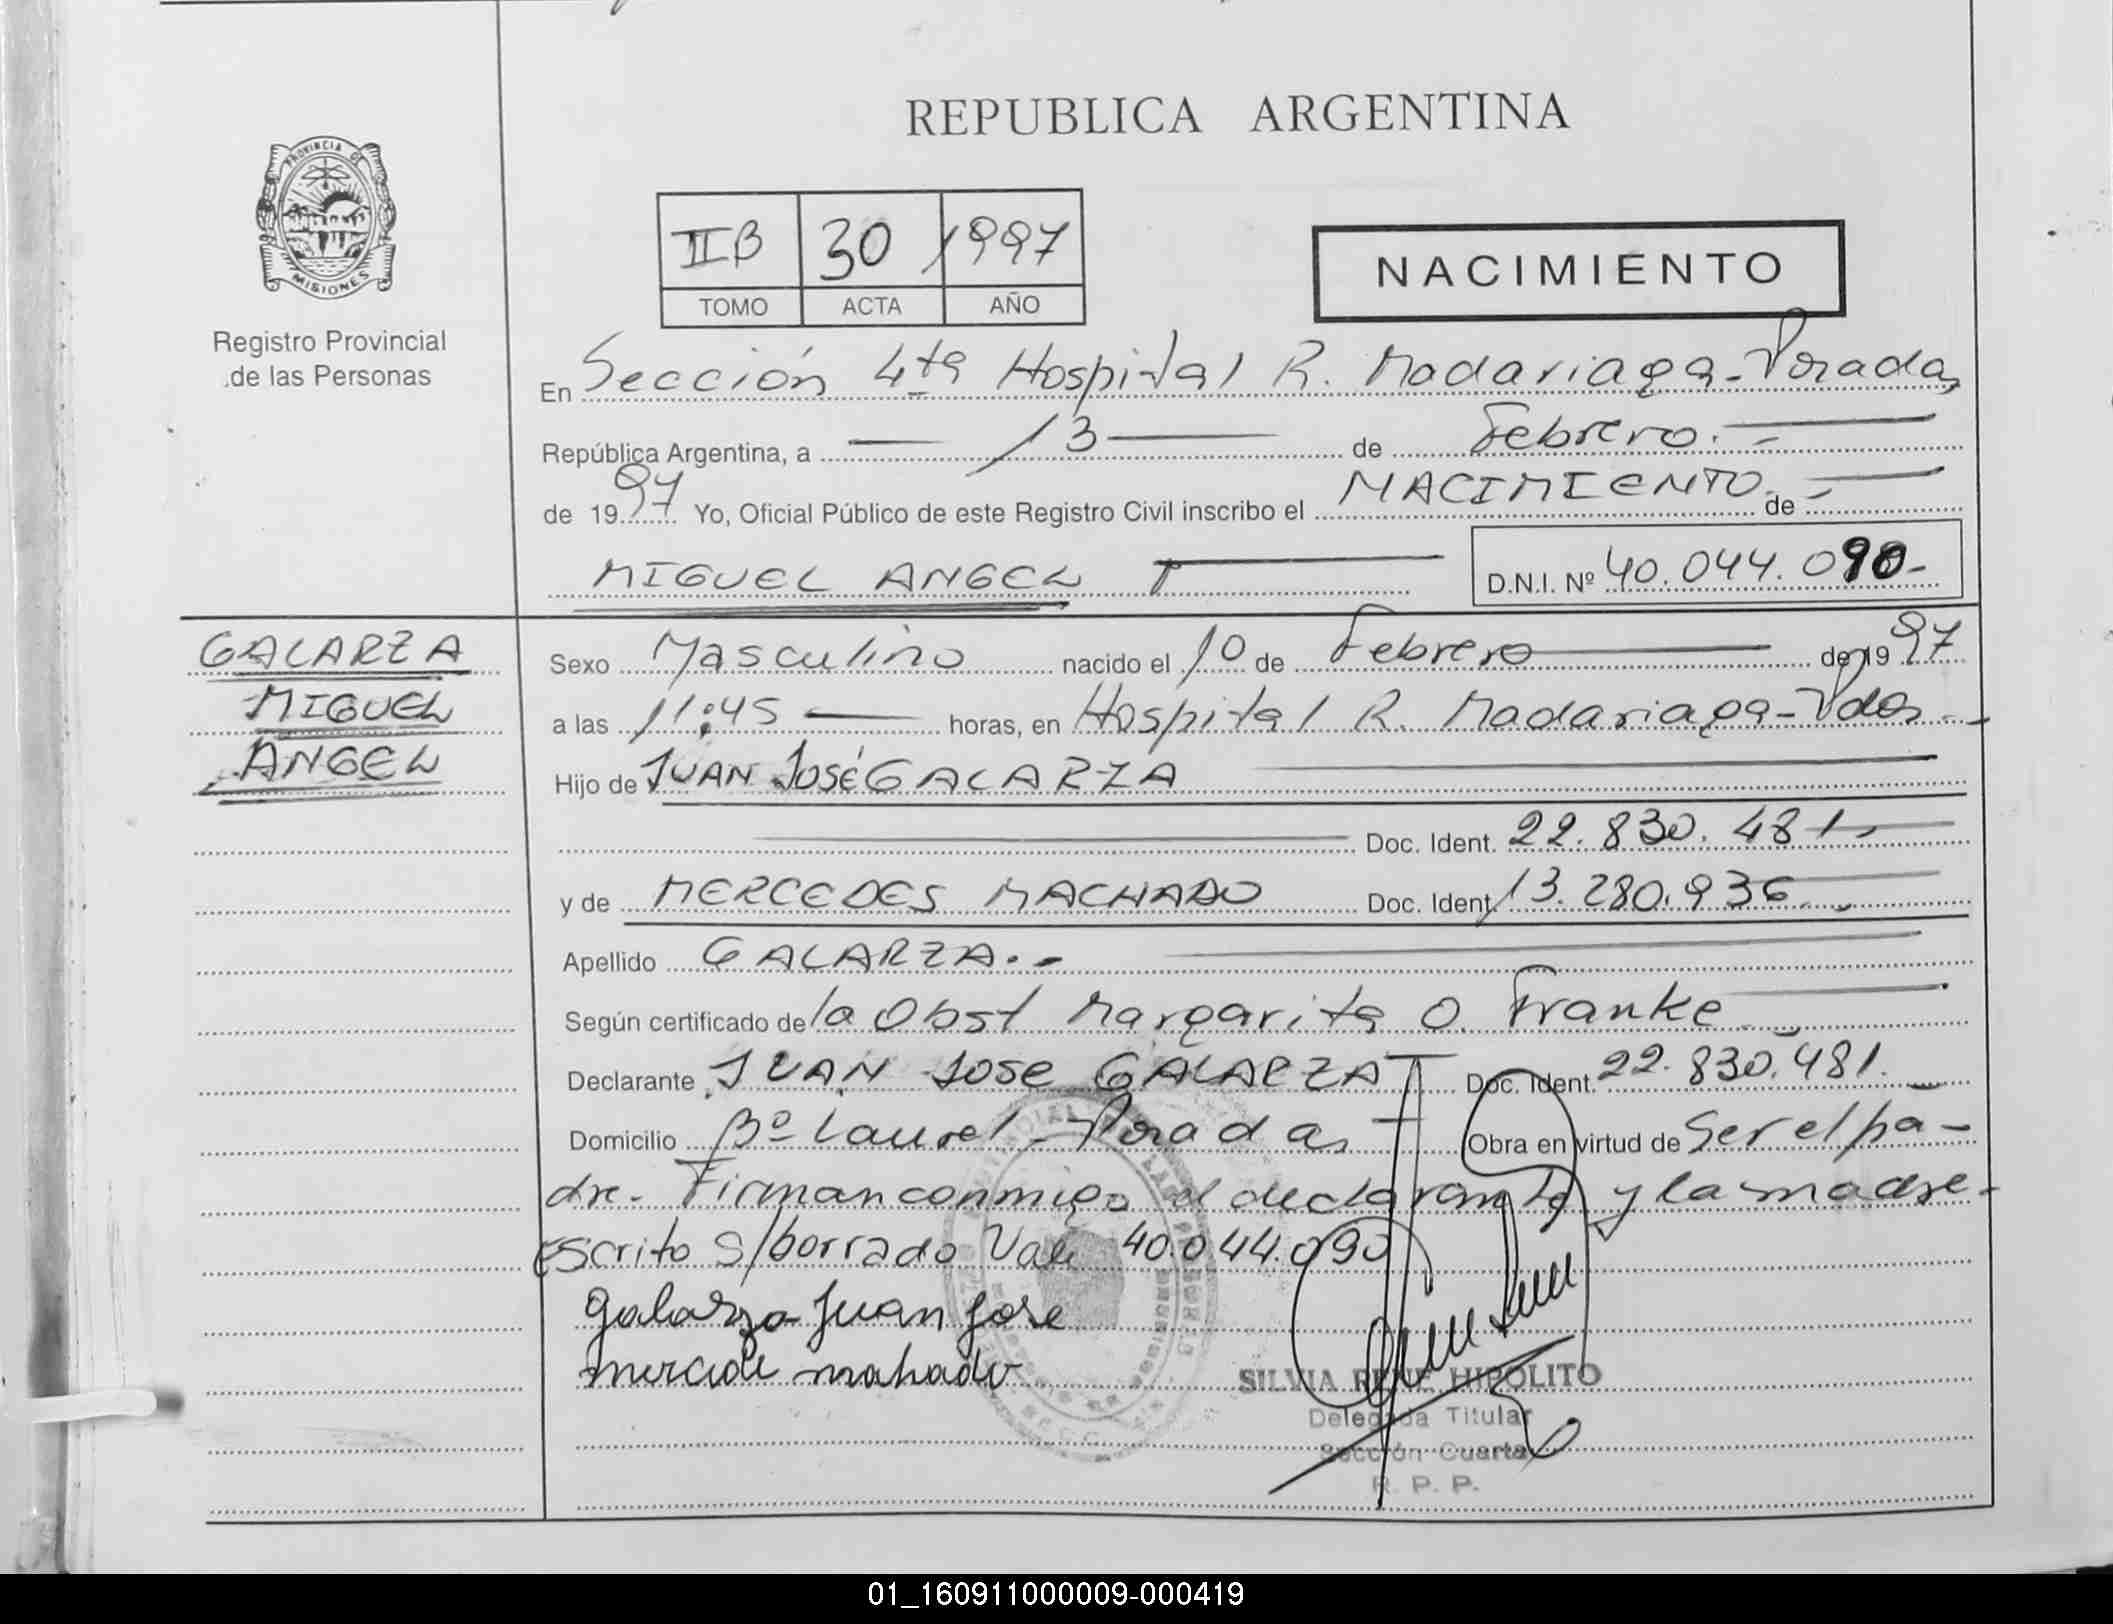 REPUBLICA ARGENTINA
PROVINCIA DE
MISIONES
Registro Provincial
de las Personas
IIB 30 1997
TOMO ACTA AÑO
NACIMIENTO
En Sección 4ta Hospital R. Madariaga - Posadas
República Argentina, a 13 de Febrero.-
de 1997 Yo, Oficial Público de este Registro Civil inscribo el NACIMIENTO.- de
MIGUEL ANGEL D.N.I. Nº 40.044.090-
GALARZA
MIGUEL
ANGEL
Sexo Masculino nacido el 10 de Febrero de 1997
a las 11:45 horas, en Hospital R. Madariaga - Pdas.-
Hijo de JUAN JOSÉ GALARZA
Doc. Ident. 22.830.481.-
y de MERCEDES MACHADO Doc. Ident. 13.280.936.-
Apellido GALARZA.-
Según certificado de la Obst Margarita O. Franke
Declarante JUAN JOSE GALARZA Doc. Ident. 22.830.481.-
Domicilio Bº Laurel - Posadas Obra en virtud de Ser el pa-
dre. Firman conmigo el declarante y la madre-
escrito s/borrado Vale 40.044.090
Galarza Juan Jose
mercede mahado
SILVIA RENE HIPOLITO
Delegada Titular
Sección Cuarta
R. P. P.
01_160911000009-000419